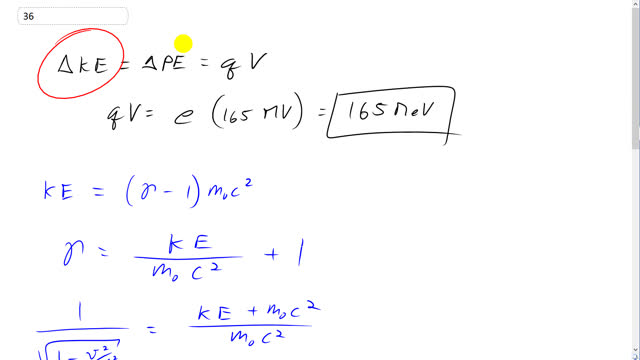 36
Δ KE = Δ PE = q V
qV = e (165 MV) = 165 MeV
KE = (γ - 1) m₀c²
γ = KE / m₀ c² + 1
1 / √(1 - v²/c²) = KE + m₀c² / m₀c²